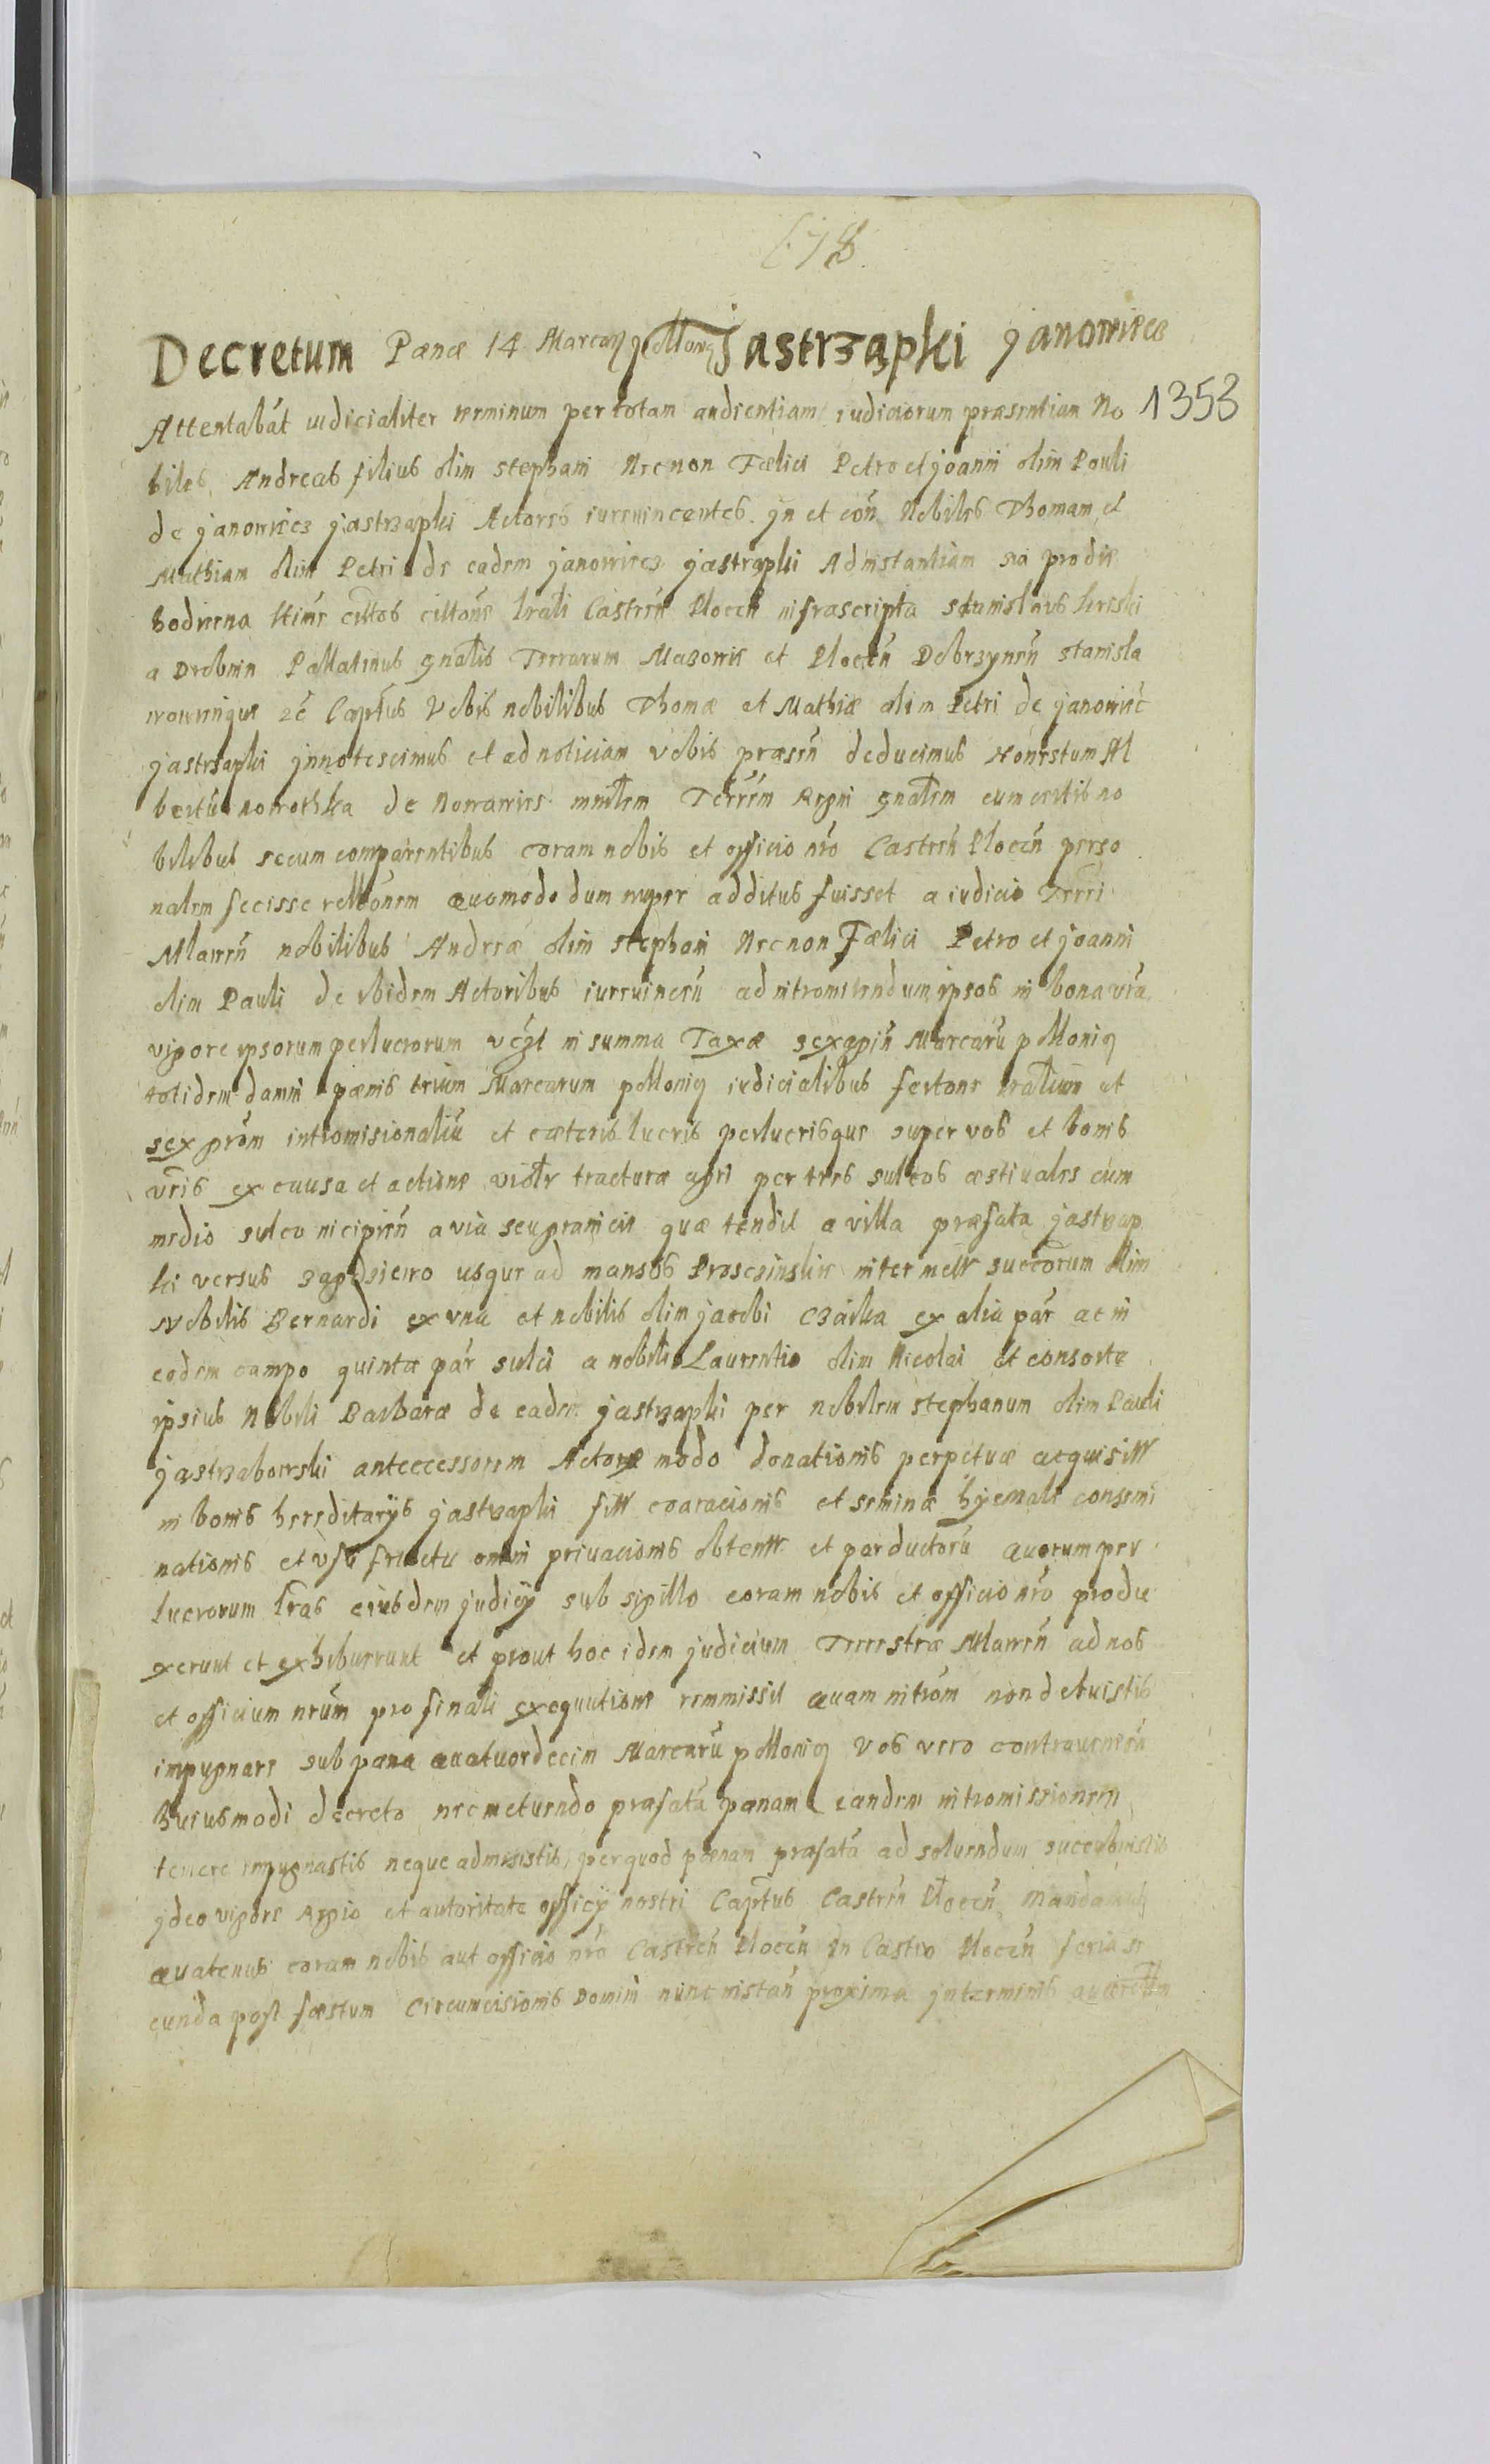 678
Decretum Pænæ 14 Marcar pollonq Jastrzapki Janowiecz
1353
Attentabat iudicialiter terminum per totam audientiam iudiciorum præsentiam No
biles Andreas filius olim Stephani Necnon Fœlici Petro et joanni olim Pauli
de janowiecz jastrzapki Actores iureuincentes jn et con Nobiles Thomam et
Mathiam olim Petri de eadem janowiecz jastrzapki Ad instantiam sia prodie
hodierna ltime cittos cittone lrali Castren Plocen infrascripta Stanislaus kriski
a Drobnin Pallatinus gnalis Terrarum Mazowie et Plocen Dobrzynen stanisla
wowinque zc Captus Vobis nobilibus Thomæ et Mathiæ olim Petri de janowiec
jastrzapki jnnotescimus et ad noticiam vobis præsen deducimus Honestum Al
bertu nowothka de Nowawies mnlem Terrem Regni gnalem cum certis no
bilibus secum comparentibus coram nobis et officio nro Castren Plocen perso
nalem fecisse rellonem quomodo dum nuper additus fuisset a iudicio Terri
Mlawen nobilibus Andreæ olim Stephani Necnon Fœlici Petro et joanni
olim Pauli de ibidem Actoribus iureuincen ad intromittendum ipsos in bona vra
vigore ipsorum perlucrorum vcgl in summa Taxæ sexagin Marcaru polloniq
totidem damni pænis trium Marcarum polloniq iudicialibus fertone lralium et
sex grom intromisionaliu et cæteris lucris perlucrisque super vos et bonis
vris ex causa et actione violr tracturæ agri per tres sulcos æstiuales cum
medio sulco incipien a via seu granicie quæ tendit a villa præfata jastrzap
ki versus usque ad mansos inter metr succorum olim
Nobilis Bernardi ex vna et nobilis olim jacobi Czaika ex alia par ac in
eodem campo quinta par sulci a nobili Laurentio olim Nicolai et consorte
ipsius Nobili Barbaræ de eadem jastrzapki per nobilem Stephanum olim Pauli
jastrzabowski anteccessorem Actoræ modo donationis perpetuæ acquisitt
in bonis hereditarys jastrzapki fitt coaracionis et seminæ hyemale consemi
nationis et vsu fructu omni priuacionis obtentt et parductoru quorum per
lucrorum lras eiusdem judicij sub sigillo coram nobis et officio nro produ
xerunt et exhibuerunt et prout hoc idem judicium Terrestræ Mlawen ad nos
et officium nrum pro finali exequutione remmissit quam introm non debuistis
impugnare sub pæna quatuordecim Marcaru polloniq Vos vero contrauenien
huiusmodi decreto nec metuendo præfata pænam eandem intromissionem
temere impugnastis neque admisistis perquod pœnam præfata ad soluendum succubuistis
jdeo vigore Regio et autoritate officij nostri Captus Castren Plocen Mandamus
quatenus coram nobis aut officio nro Castren Plocen in Castro Plocen feria se
cunda post fæstum Circumcisionis Domini nunc instan proxima jn terminis